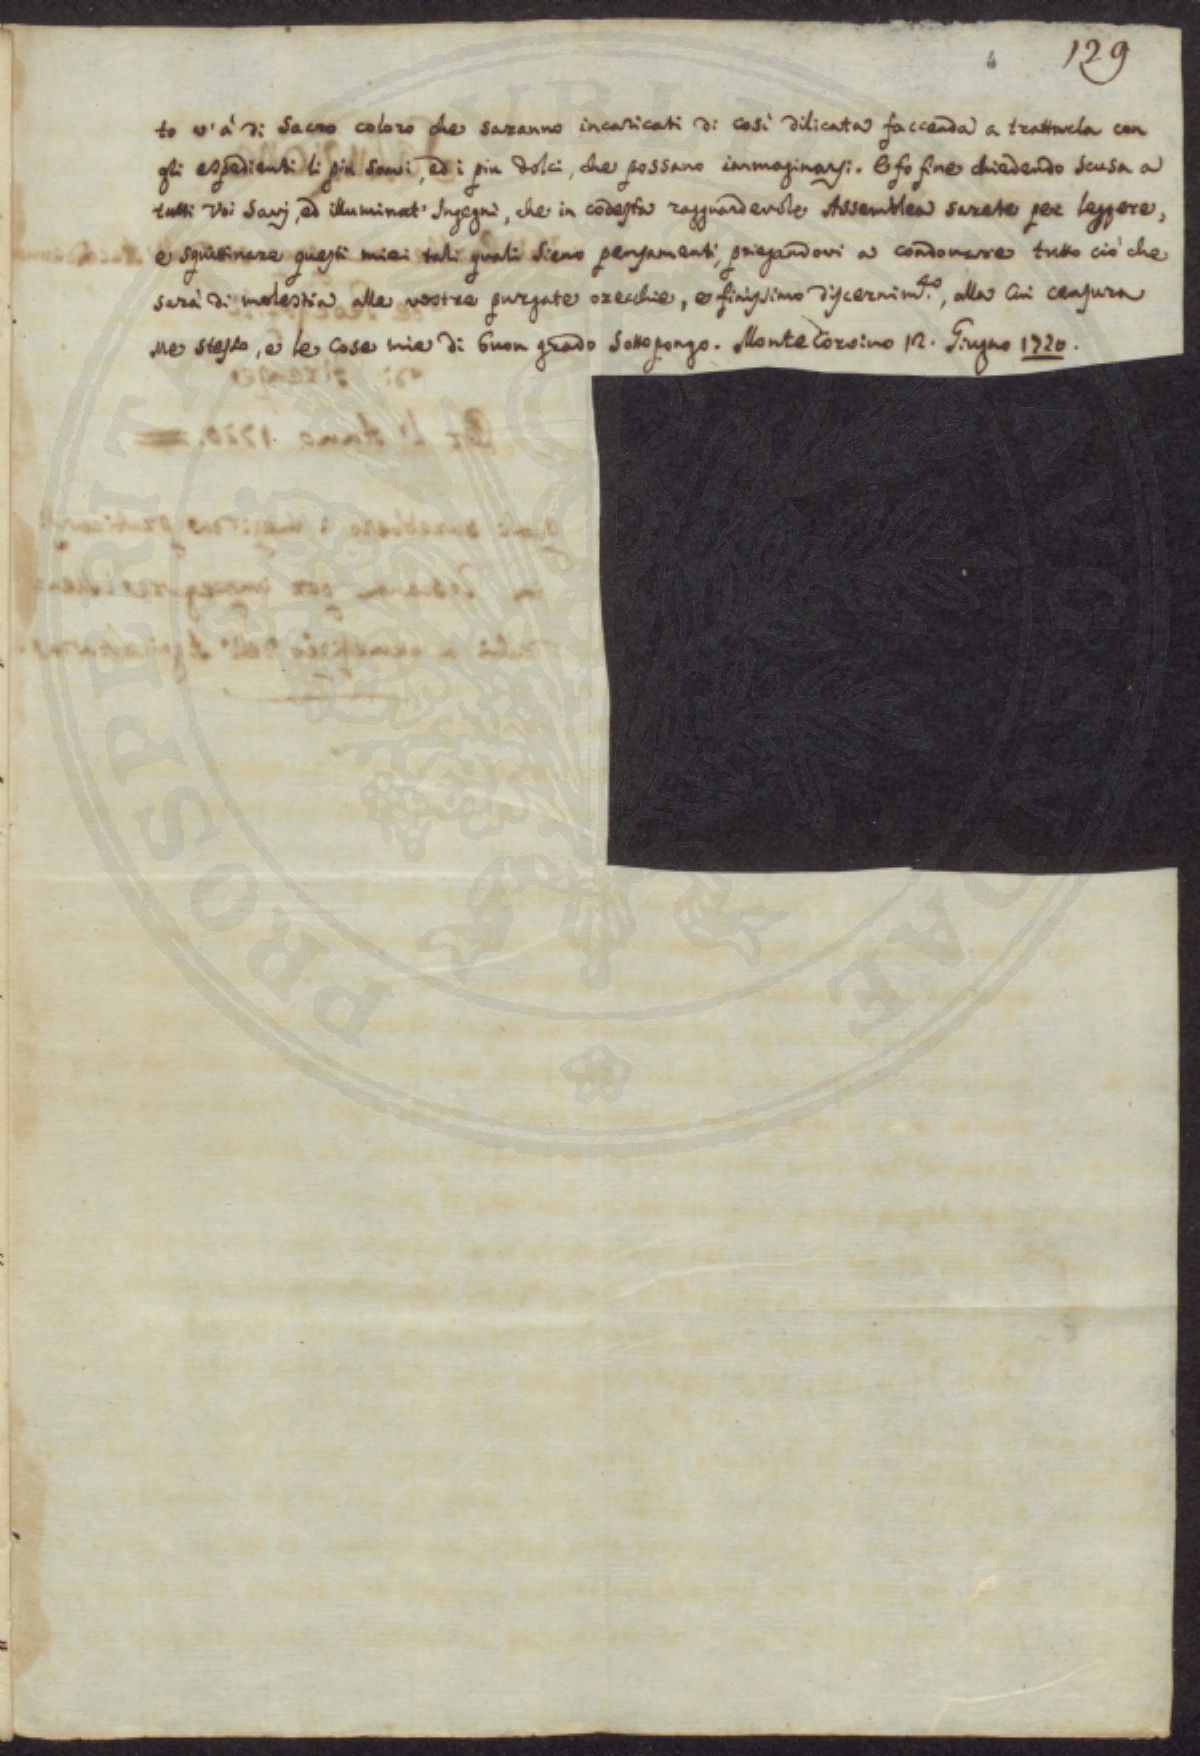 129
to v'à di Sacro coloro che saranno incaricati di così dilicata faccenda a trattarla con
gli espedienti li più soavi, ed i più dolci, che possano immaginarsi. E fo fine chiedendo scusa a
tutti Voi Savj, ed illuminati Ingegni, che in codesta ragguardevole Assemblea sarete per leggere,
e squittinare questi miei tali quali sieno pensamenti, priegandovi a condonarre tutto ciò che
sarà di molestia alle vostre purgate orecchie, e finissimo discernim.to, alla cui censura
me stesso, e le cose mie di buon grado sottopongo. Montecorvino 12. Giugno 1720.
PROSPERITATI PUBLICAE AUGENDAE